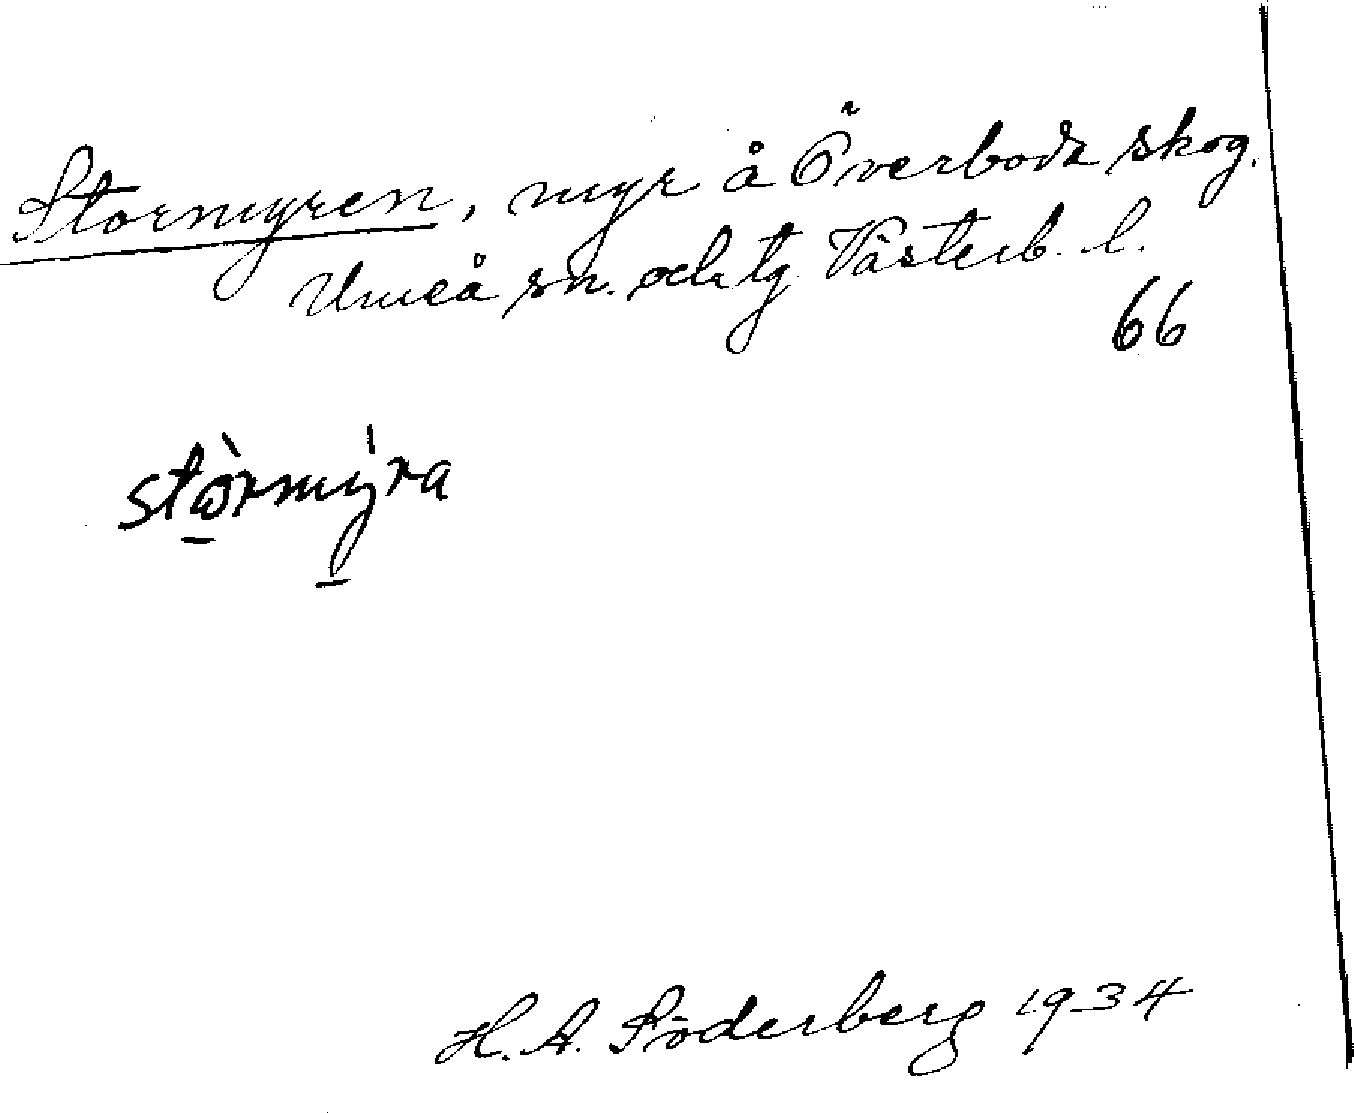 Stormyren, myr å Överboda skog.
Umeå sn. och tg. Västerb. l.
66
stòrmýra
H. A. Söderberg 1934